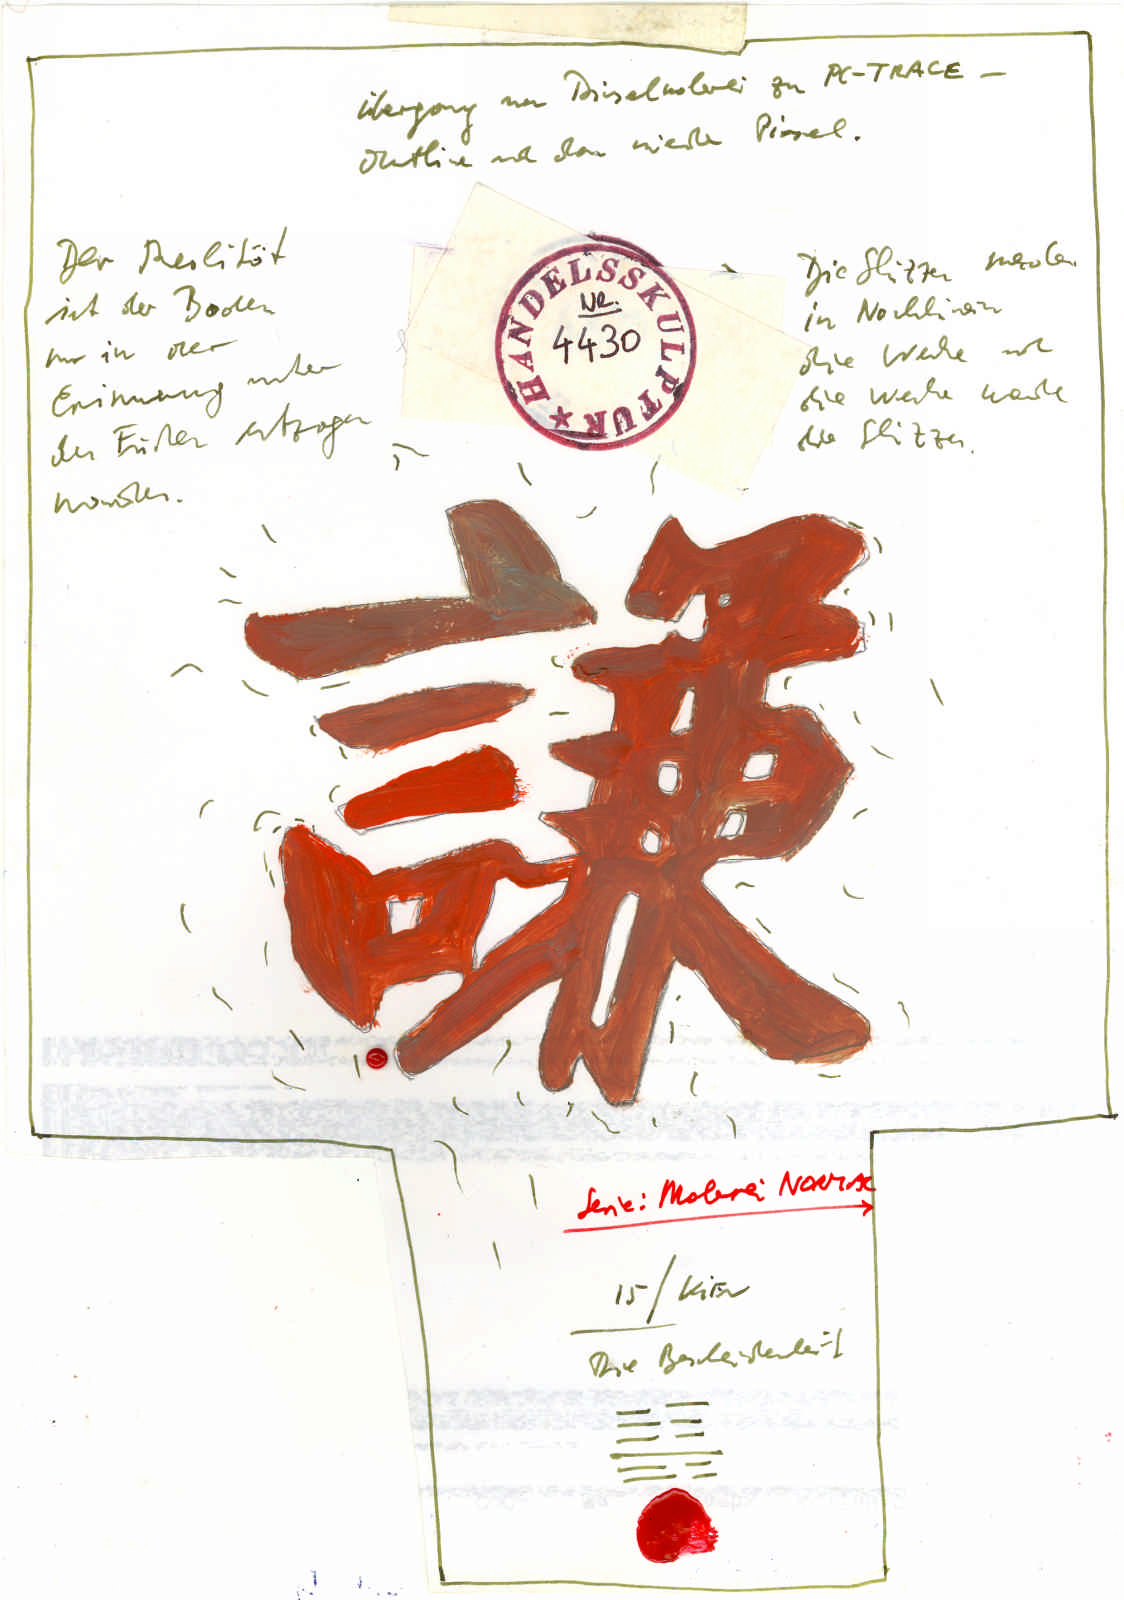 Übergang von Pinselmalerei zu PC-TRACE –
Outline und dann wieder Pinsel.
Der Realität
ist der Boden
nur in der
Erinnerung unter
den Füßen entzogen
worden.
HANDELSSKULPTUR
NR.
4430
Die Skizzen werden
in Nachhinein
die Werke und
die Werke werden
die Skizzen.
謙
Serie: Malerei
15/KIEN
Die Bescheidenheit